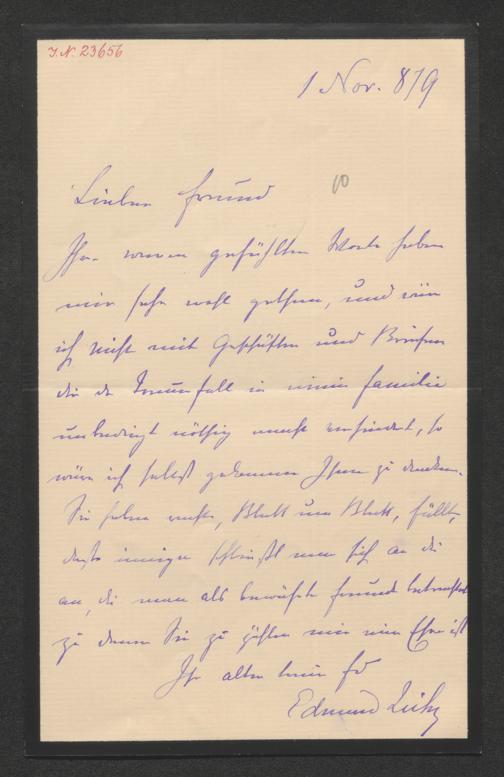 I.N. 23656
1 Nov. 879
10
Lieber Freund
Ihre warm gefühlten Worte haben
mir sehr wohl gethan, und wäre
ich nicht mit Geschäften und Briefen
die der Trauerfall in meiner Familie
unbedingt nöthig macht verhindert, so
wäre ich selbst gekommen Ihnen zu danken.
Sie haben recht, Blatt um Blatt, fällt,
desto inniger schließt man sich an die
an, die man als bewährte Freunde betrachtet
zu denen Sie zu zählen mir eine Ehre ist
Ihr alter treuer
Edmund